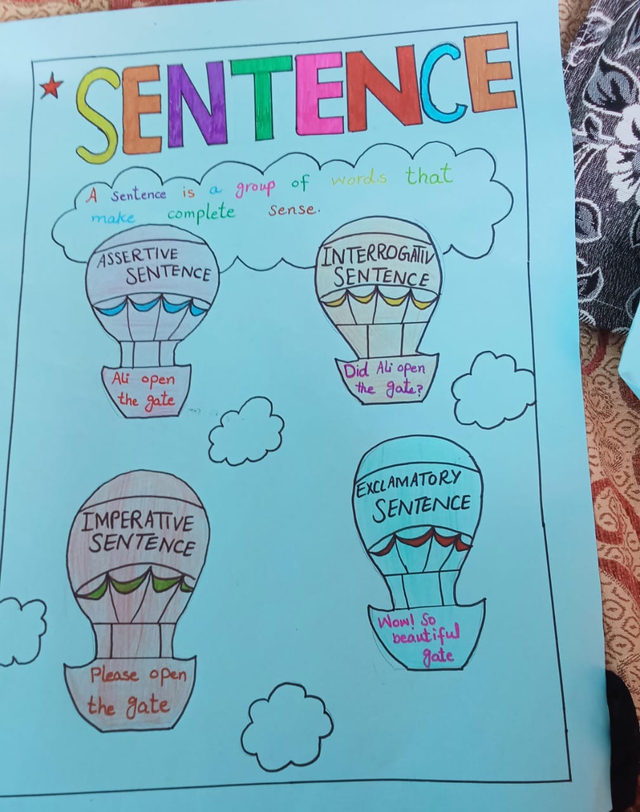 SENTENCE
A sentence is a group of words that
make complete sense.
ASSERTIVE
SENTENCE
Ali open
the gate
INTERROGATIV
SENTENCE
Did Ali open
the gate?
IMPERATIVE
SENTENCE
Please open
the gate
EXCLAMATORY
SENTENCE
Wow! So
beautiful
gate